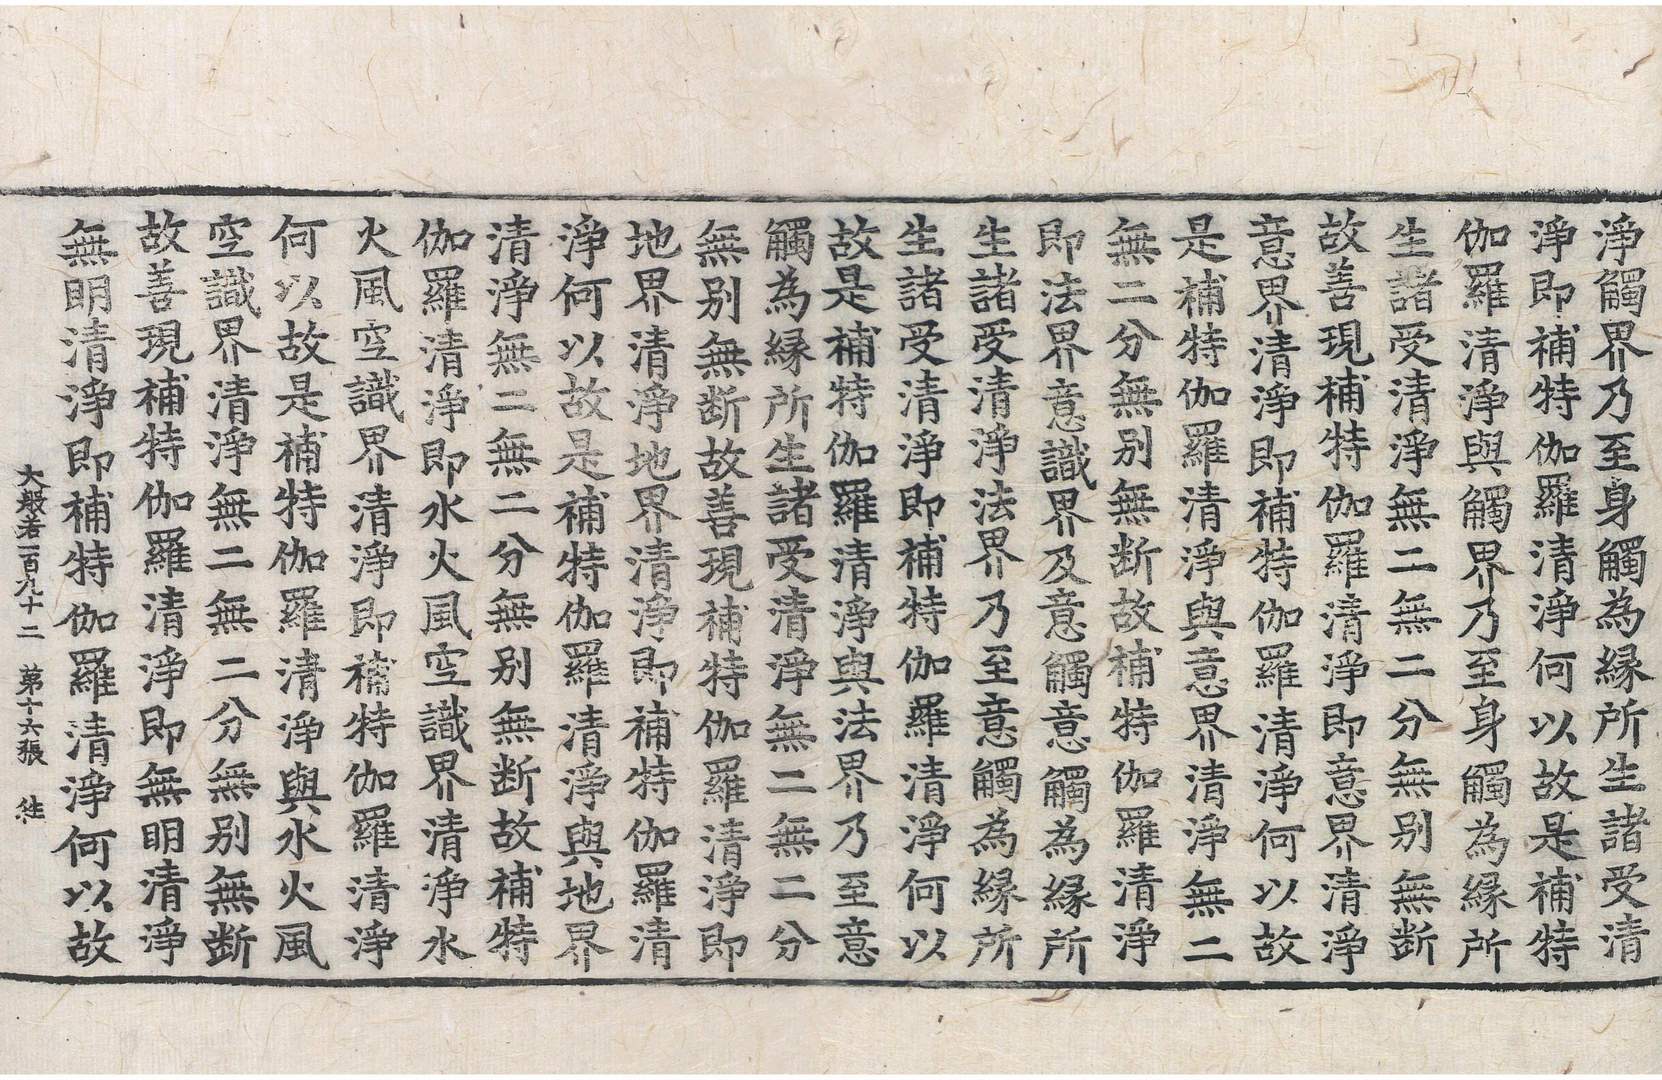 淨觸界乃至身觸為縁所生諸受清
淨即補特伽羅清淨何以故是補特
伽羅清淨與觸界乃至身觸為縁所
生諸受清淨無二無二分無别無断
故善現補特伽羅清淨即意界清淨
意界清淨即補特伽羅清淨何以故
是補特伽羅清淨與意界清淨無二
無二分無别無断故補特伽羅清淨
即法界意識界及意觸意觸為縁所
生諸受清淨法界乃至意觸為縁所
生諸受清淨即補特伽羅清淨何以
故是補特伽羅清淨與法界乃至意
觸為縁所生諸受清淨無二無二分
無别無断故善現補特伽羅清淨即
地界清淨地界清淨即補特伽羅清
淨何以故是補特伽羅清淨與地界
清淨無二無二分無别無断故補特
伽羅清淨即水火風空識界清淨水
火風空識界清淨即補特伽羅清淨
何以故是補特伽羅清淨與水火風
空識界清淨無二無二分無别無断
故善現補特伽羅清淨即無明清淨
無明清淨即補特伽羅清淨何以故
大般若一百九十二 第十六張